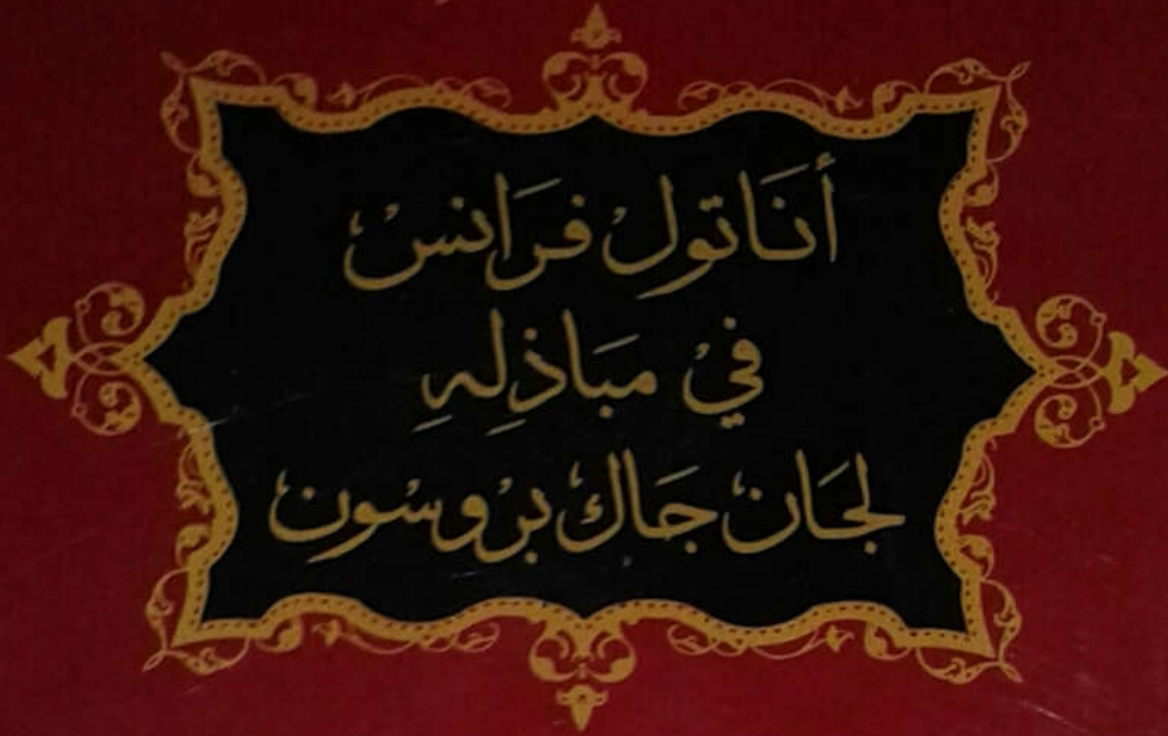 أَنَاتول فرَانسْ
فيْ مبَاذِلِهِ
لجَان جَاك برْوسْون